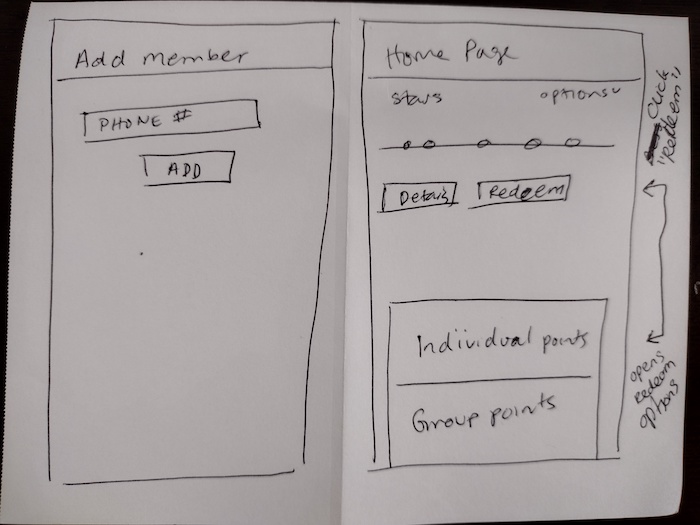 Add member
PHONE #
ADD
Home Page
stars
options
Details
Redeem
Individual points
Group points
Click
"Redeem"
opens
redeem
options